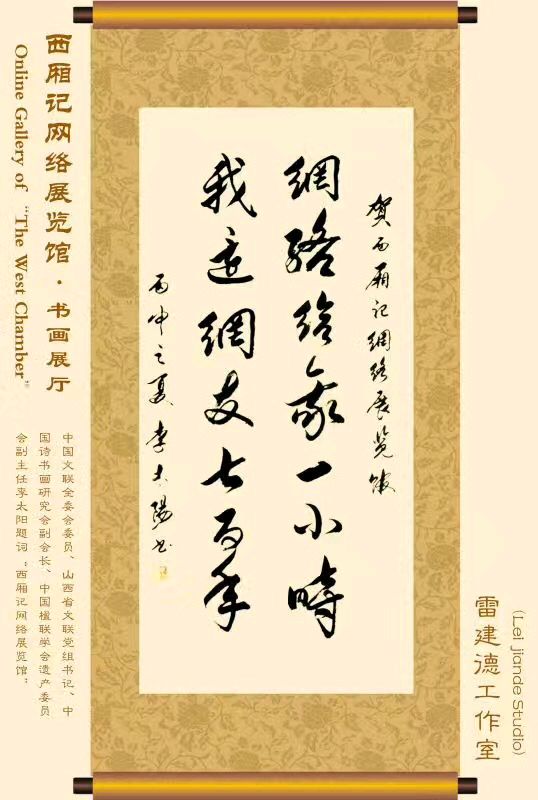 西厢记网络展览馆·书画展厅
Online Gallery of "The West Chamber"
賀西廂記網絡展览馆
網絡給我一小時
我還網友七百年
丙申之夏 李太陽书
中国文联全委会委员、山西省文联党组书记、中
国诗书画研究会副会长、中国楹联学会遗产委员
会副主任李太阳题词“西厢记网络展览馆”
(Lei jiande Studio)
雷建德工作室